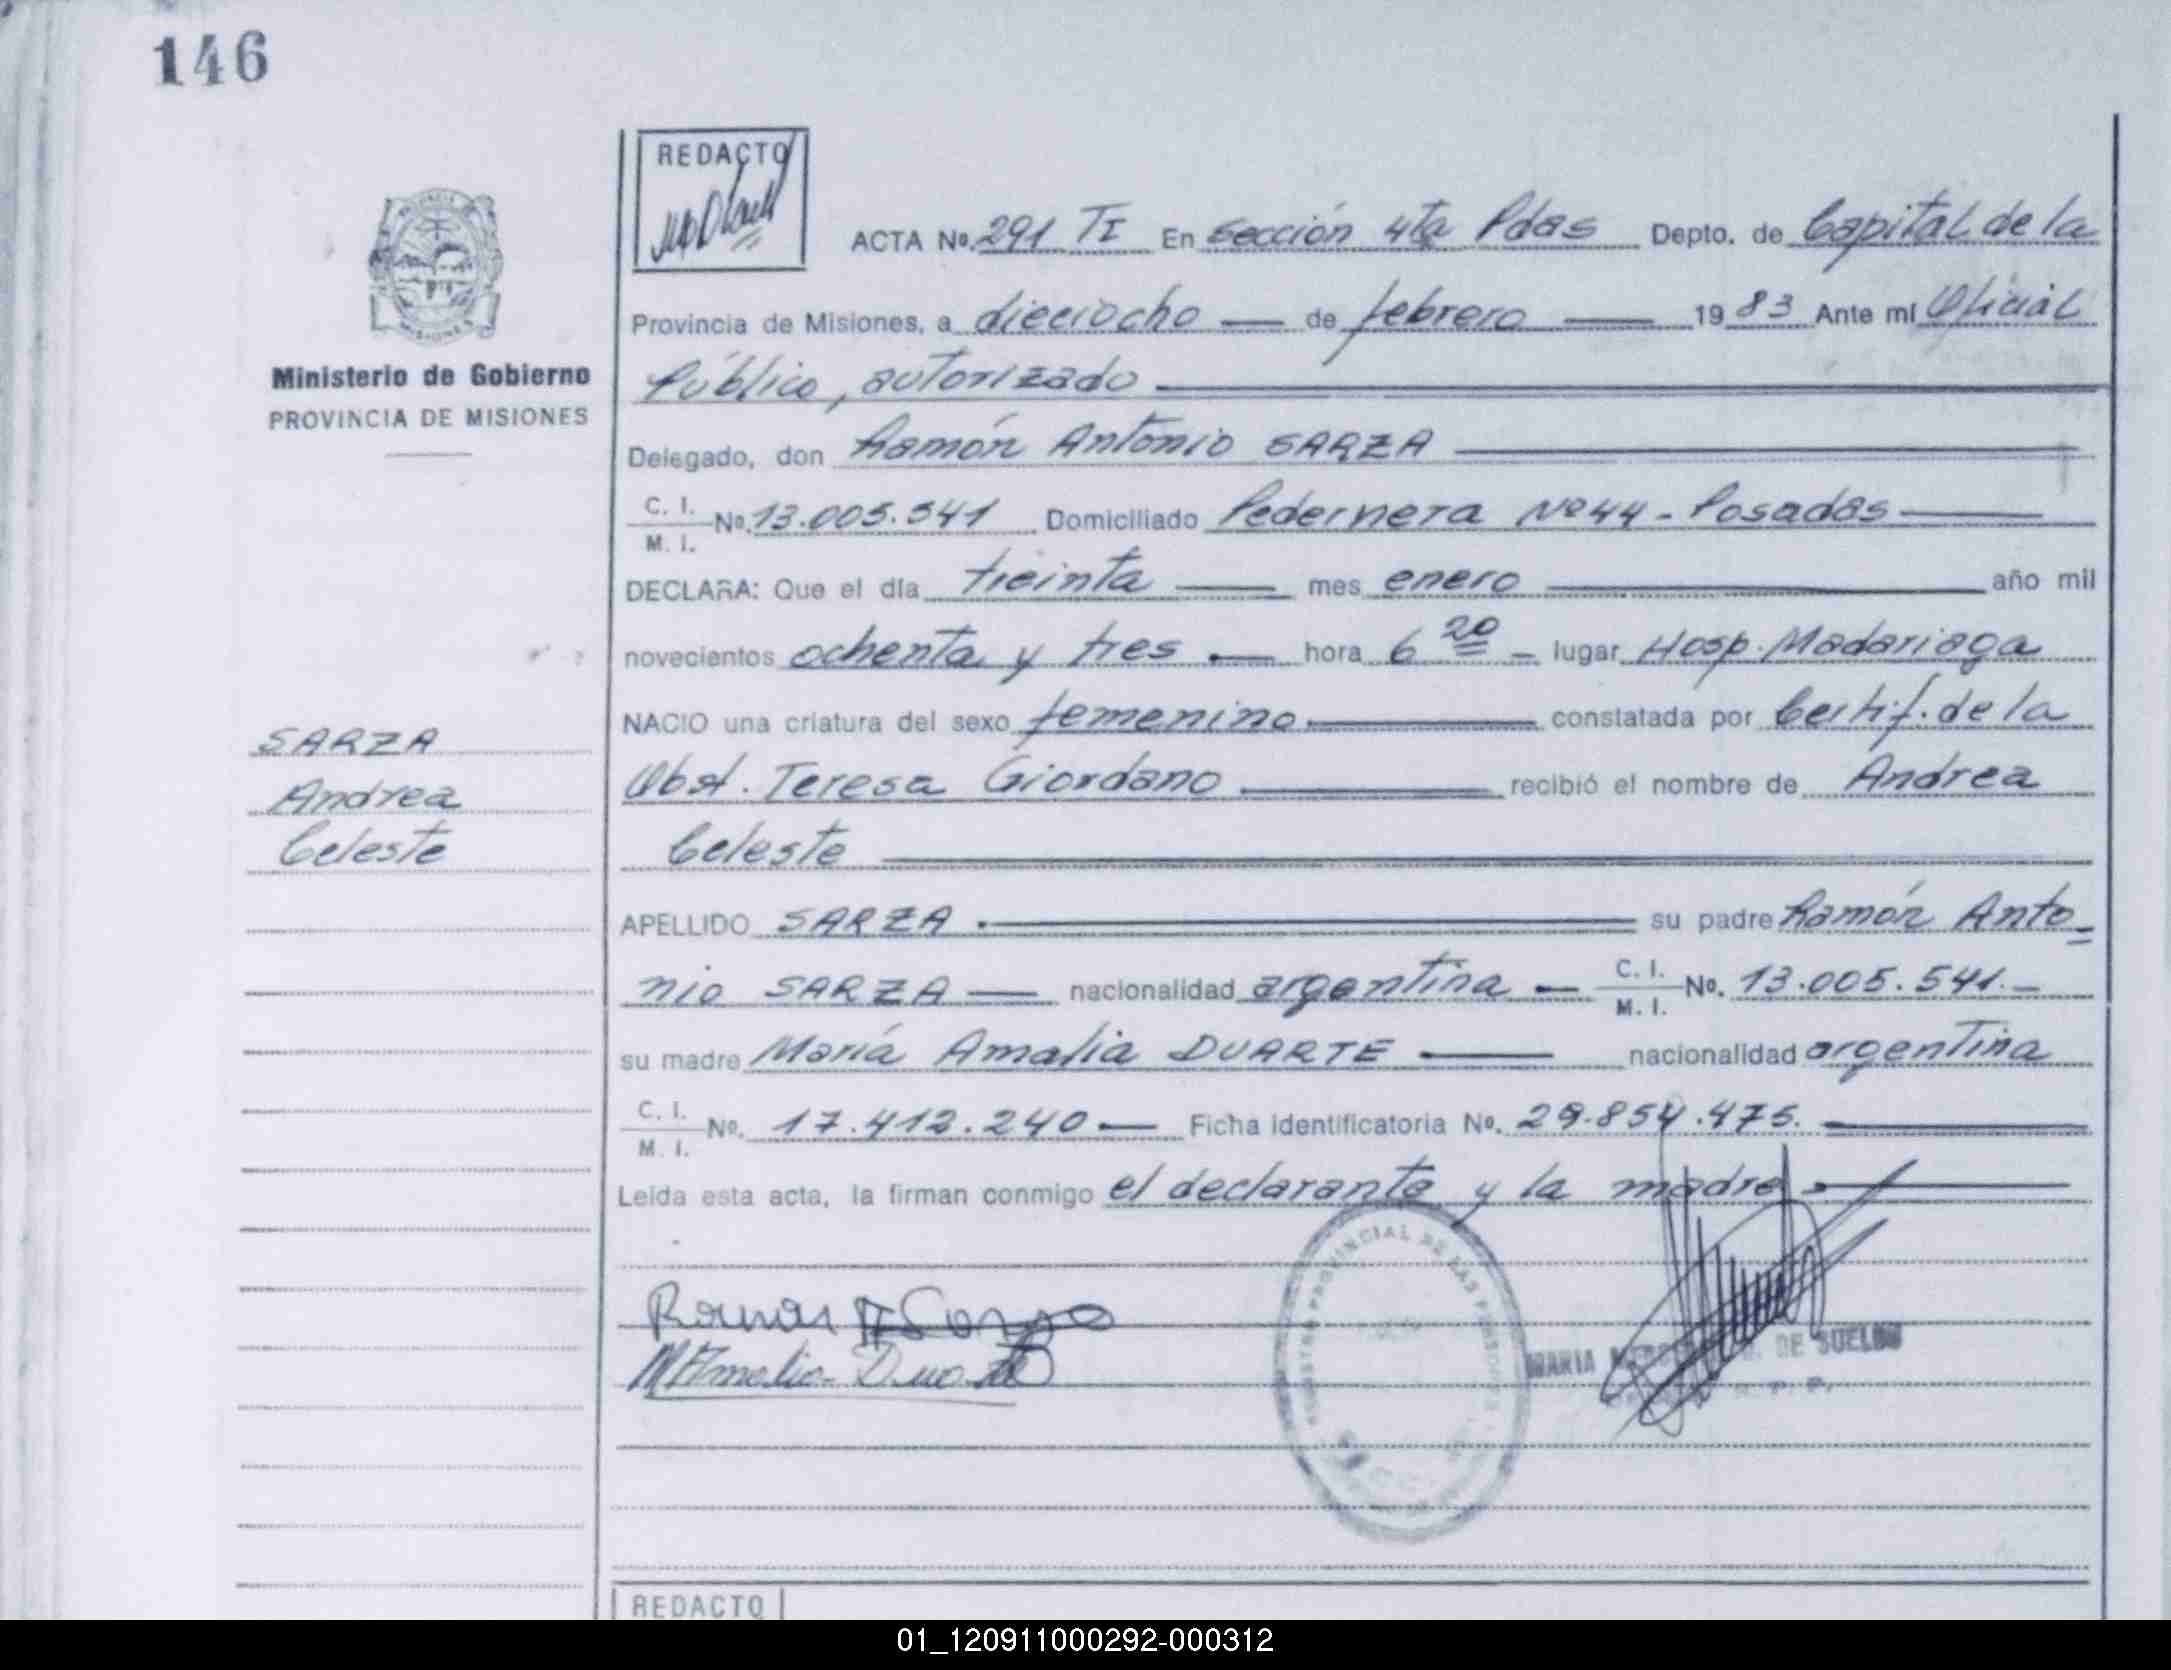 146
REDACTO
ACTA No. 291 TI En Sección 4ta Pdas Depto. de Capital de la
Provincia de Misiones, a dieciocho — de febrero — 1983 Ante mi Oficial
Ministerio de Gobierno
PROVINCIA DE MISIONES
Público, autorizado
Delegado, don Ramón Antonio SARZA
C. I.
M. I. No. 13.005.541 Domiciliado Pedernera Nº 44 - Posadas
DECLARA: Que el día treinta — mes enero — año mil
novecientos ochenta y tres — hora 6 20 — lugar Hosp. Madariaga
NACIO una criatura del sexo femenino — constatada por Certif. de la
SARZA
Andrea
Celeste
Obst. Teresa Giordano — recibió el nombre de Andrea
Celeste
APELLIDO SARZA — su padre Ramón Anto=
nio SARZA — nacionalidad argentina — C. I.
M. I. No. 13.005.541.—
su madre María Amalia DUARTE — nacionalidad argentina
C. I.
M. I. No. 17.412.240 — Ficha identificatoria No. 29.854.475.
Leída esta acta, la firman conmigo el declarante y la madre
Ramon A Sarza
M Amalia Duarte
PROVINCIAL DE LAS PERSONAS
MARIA DE SUELDO
REDACTO
01_120911000292-000312